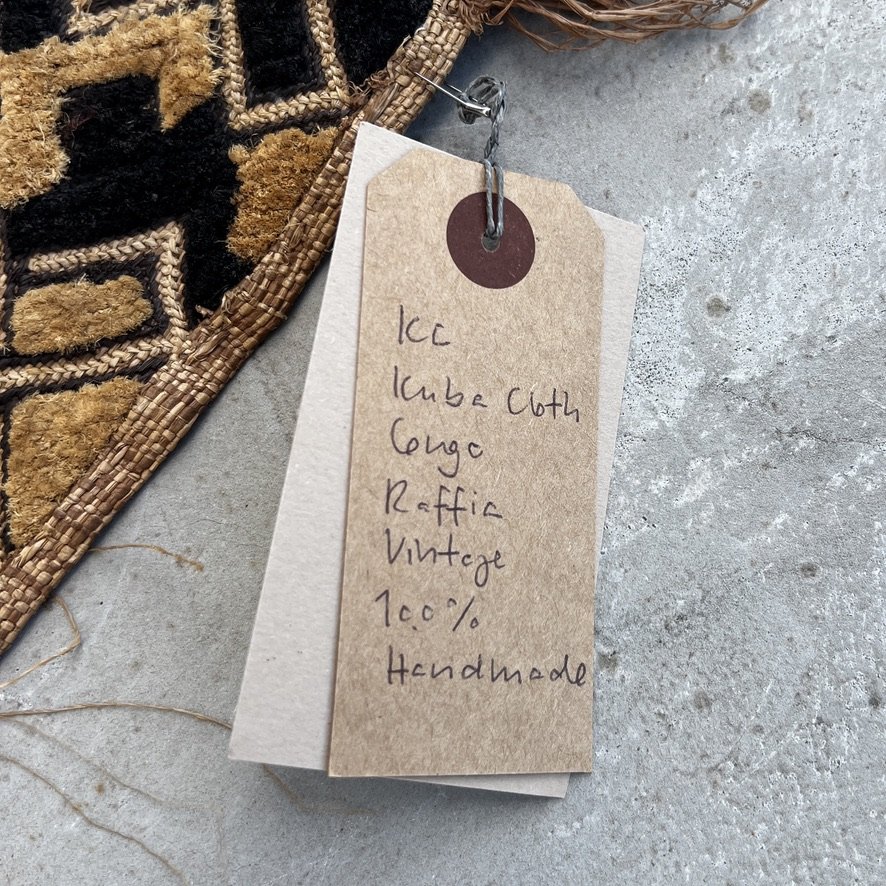 KC
Kuba Cloth
Congo
Raffia
Vintage
100%
Handmade